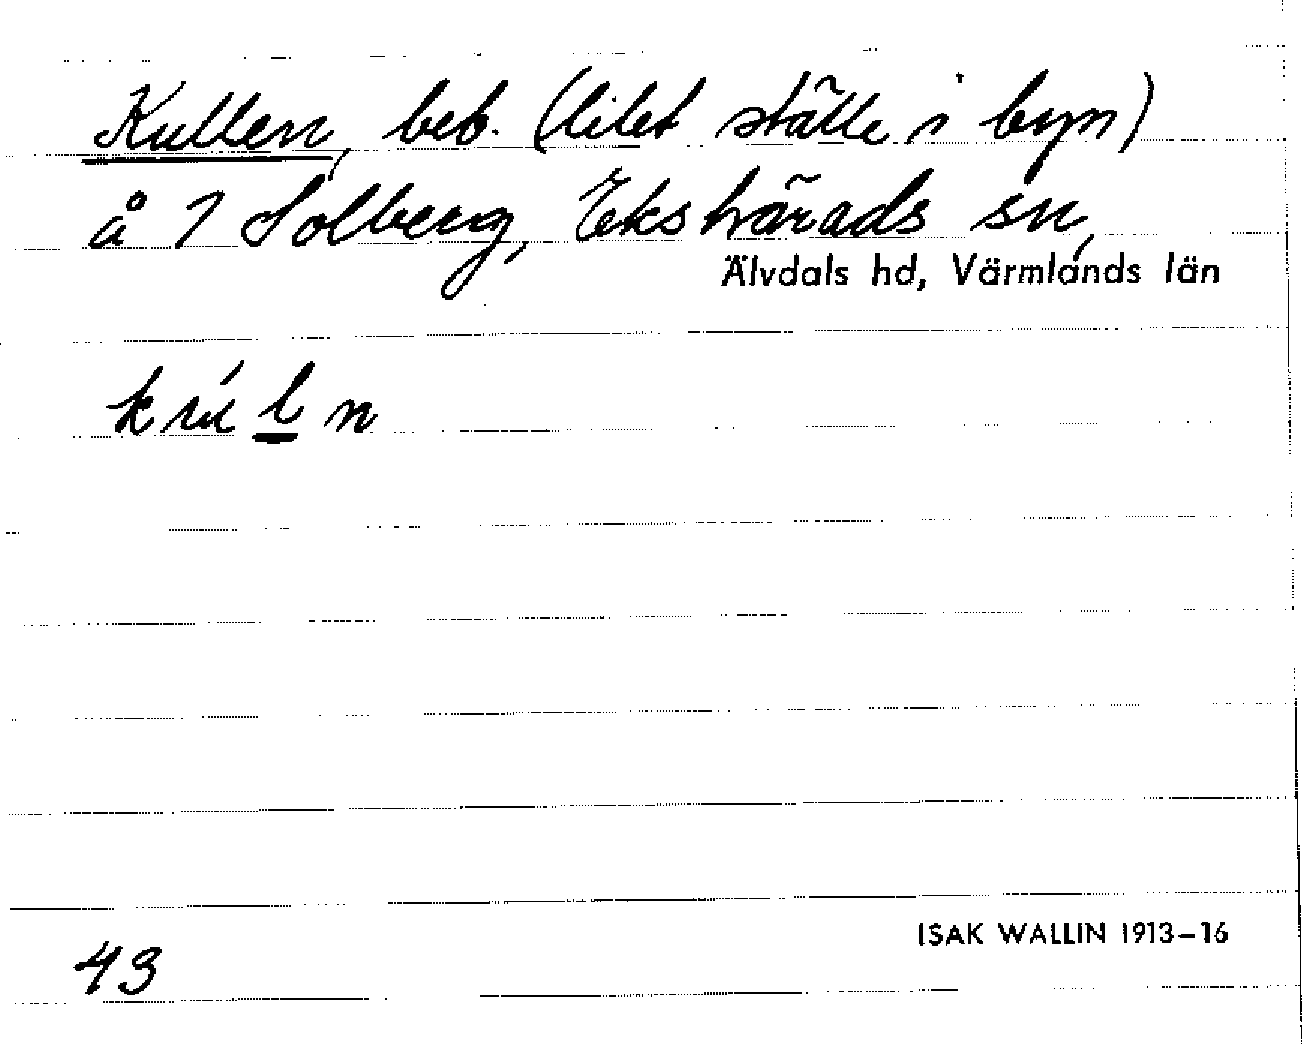 Kullen, beb. (litet ställe i byn)
å 1 Solberg, Ekshärads sn,
Älvdals hd, Värmlands län
43
ISAK WALLIN 1913-16